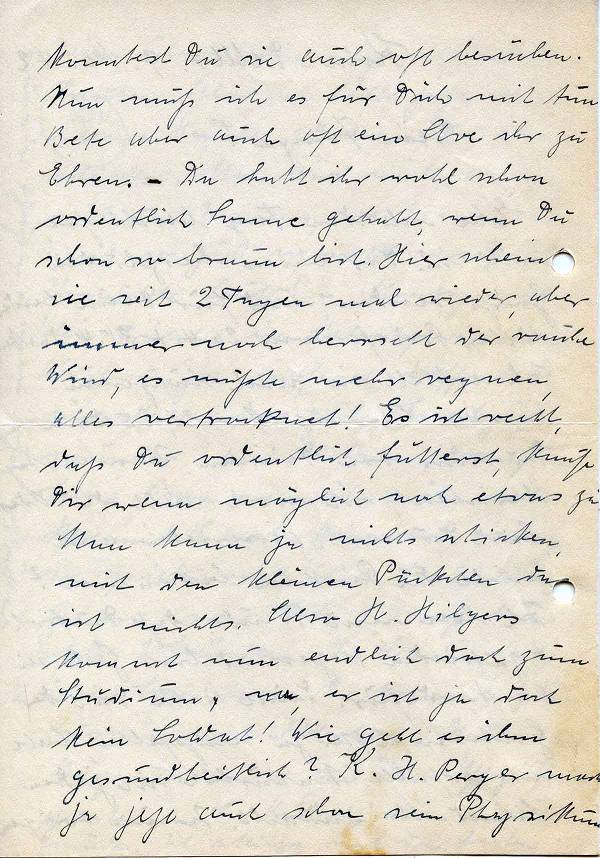 konntest Du sie auch oft besuchen.
Nun muß ich es für Dich mit tun
Bete aber auch oft ein Ave ihr zu
Ehren. - Du habt ihr wohl schon
ordentlich Sonne gehabt, wenn Du
schon so braun bist. Hier scheint
sie seit 2 Tagen mal wieder, aber
immer noch herrscht der rauhe
Wind, es müßte mehr regnen,
alles vertrocknet! Es ist recht,
daß Du ordentlich futterst, kaufe
Dir wenn möglich noch etwas zu
Man kann ja nichts schicken,
mit den kleinen Päckchen das
ist nichts. Also H. Hilgers
kommt nun endlich doch zum
Studium, na, er ist ja doch
kein Soldat! Wie geht es ihm
gesundheitlich? K. H. Perger mach
ja jetzt auch schon sein Physikum